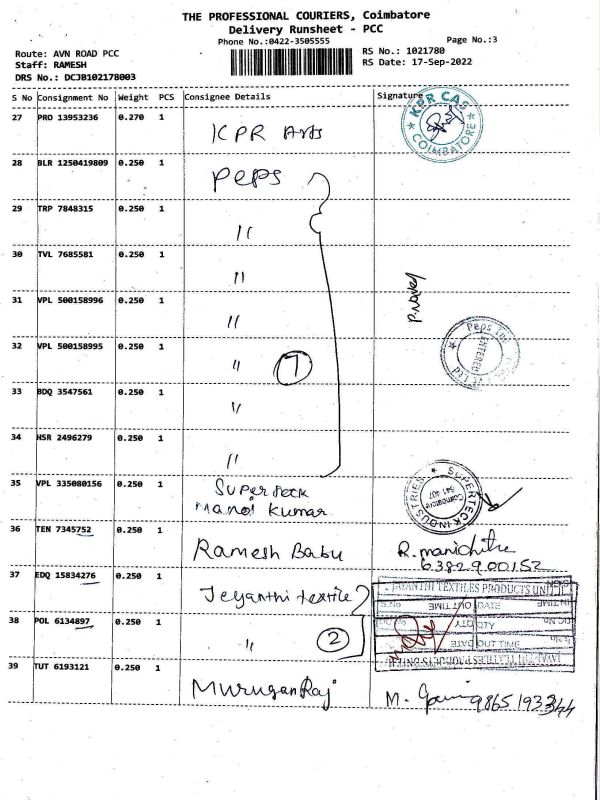 THE PROFESSIONAL COURIERS, Coimbatore
Delivery Runsheet - PCC
Phone No.:0422-3505555
Page No.:3
Route: AVN ROAD PCC
RS No.: 1021780
Staff: RAMESH
RS Date: 17-Sep-2022
DRS No.: DCJB102178003
S No Consignment No Weight PCS Consignee Details Signature
27 PRO 13953236 0.270 1 KPR Arts
KPR CAS COIMBATORE
28 BLR 1250419809 0.250 1 Peps
29 TRP 7848315 0.250 1 "
30 TVL 7685581 0.250 1 "
31 VPL 500158996 0.250 1 "
32 VPL 500158995 0.250 1 " 7
ENTERED
33 BDQ 3547561 0.250 1 "
34 HSR 2496279 0.250 1 "
35 VPL 335080156 0.250 1 Superteck
Manoj Kumar
SUPERTECK INDUSTRIES
Coimbatore
641 407
36 TEN 7345752 0.250 1 Ramesh Babu R. manichitra
6382900152
37 EDQ 15834276 0.250 1 Jeyanthi textile
JAYANTHI TEXTILES PRODUCTS UNIT II
38 POL 6134897 0.250 1 " 2
DATE OUT TIME
39 TUT 6193121 0.250 1 MuruganRaj M.